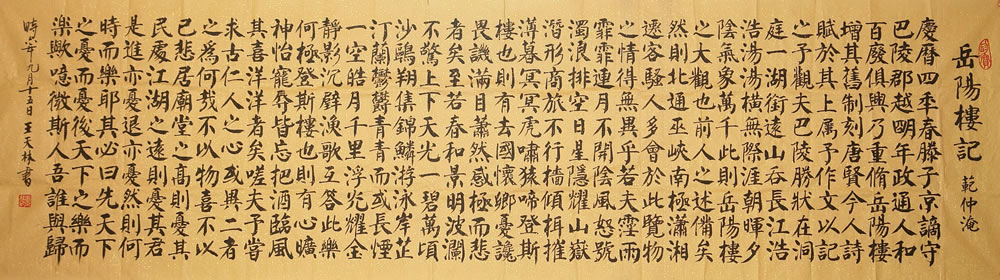 岳陽樓記
範仲淹
慶曆四年春滕子京謫守
巴陵郡越明年政通人和
百廢俱興乃重脩岳陽樓
增其舊制刻唐賢今人詩
賦於其上属予作文以記
之予觀夫巴陵勝狀在洞
庭一湖銜遠山吞長江浩
浩湯湯橫無際涯朝暉夕
陰氣象萬千此則岳陽樓
之大觀也前人之述備矣
然則北通巫峽南極瀟湘
遷客騷人多會於此覽物
之情得無異乎若夫霪雨
霏霏連月不開陰風怒號
濁浪排空日星隱耀山嶽
潛形商旅不行檣傾楫摧
薄暮冥冥虎嘯猿啼登斯
樓也則有去國懷鄉憂讒
畏譏滿目蕭然感極而悲
者矣至若春和景明波瀾
不驚上下天光一碧萬頃
沙鷗翔集錦鱗游泳岸芷
汀蘭鬱鬱青青而或長煙
一空皓月千里浮光耀金
靜影沉璧漁歌互答此樂
何極登斯樓也則有心曠
神怡寵辱皆忘把酒臨風
其喜洋洋者矣嗟夫予嘗
求古仁人之心或異二者
之為何哉不以物喜不以
己悲居廟堂之高則憂其
民處江湖之遠則憂其君
是進亦憂退亦憂然則何
時而樂耶其必曰先天下
之憂而憂後天下之樂而
樂歟噫微斯人吾誰與歸
時六年九月十五日王天林書